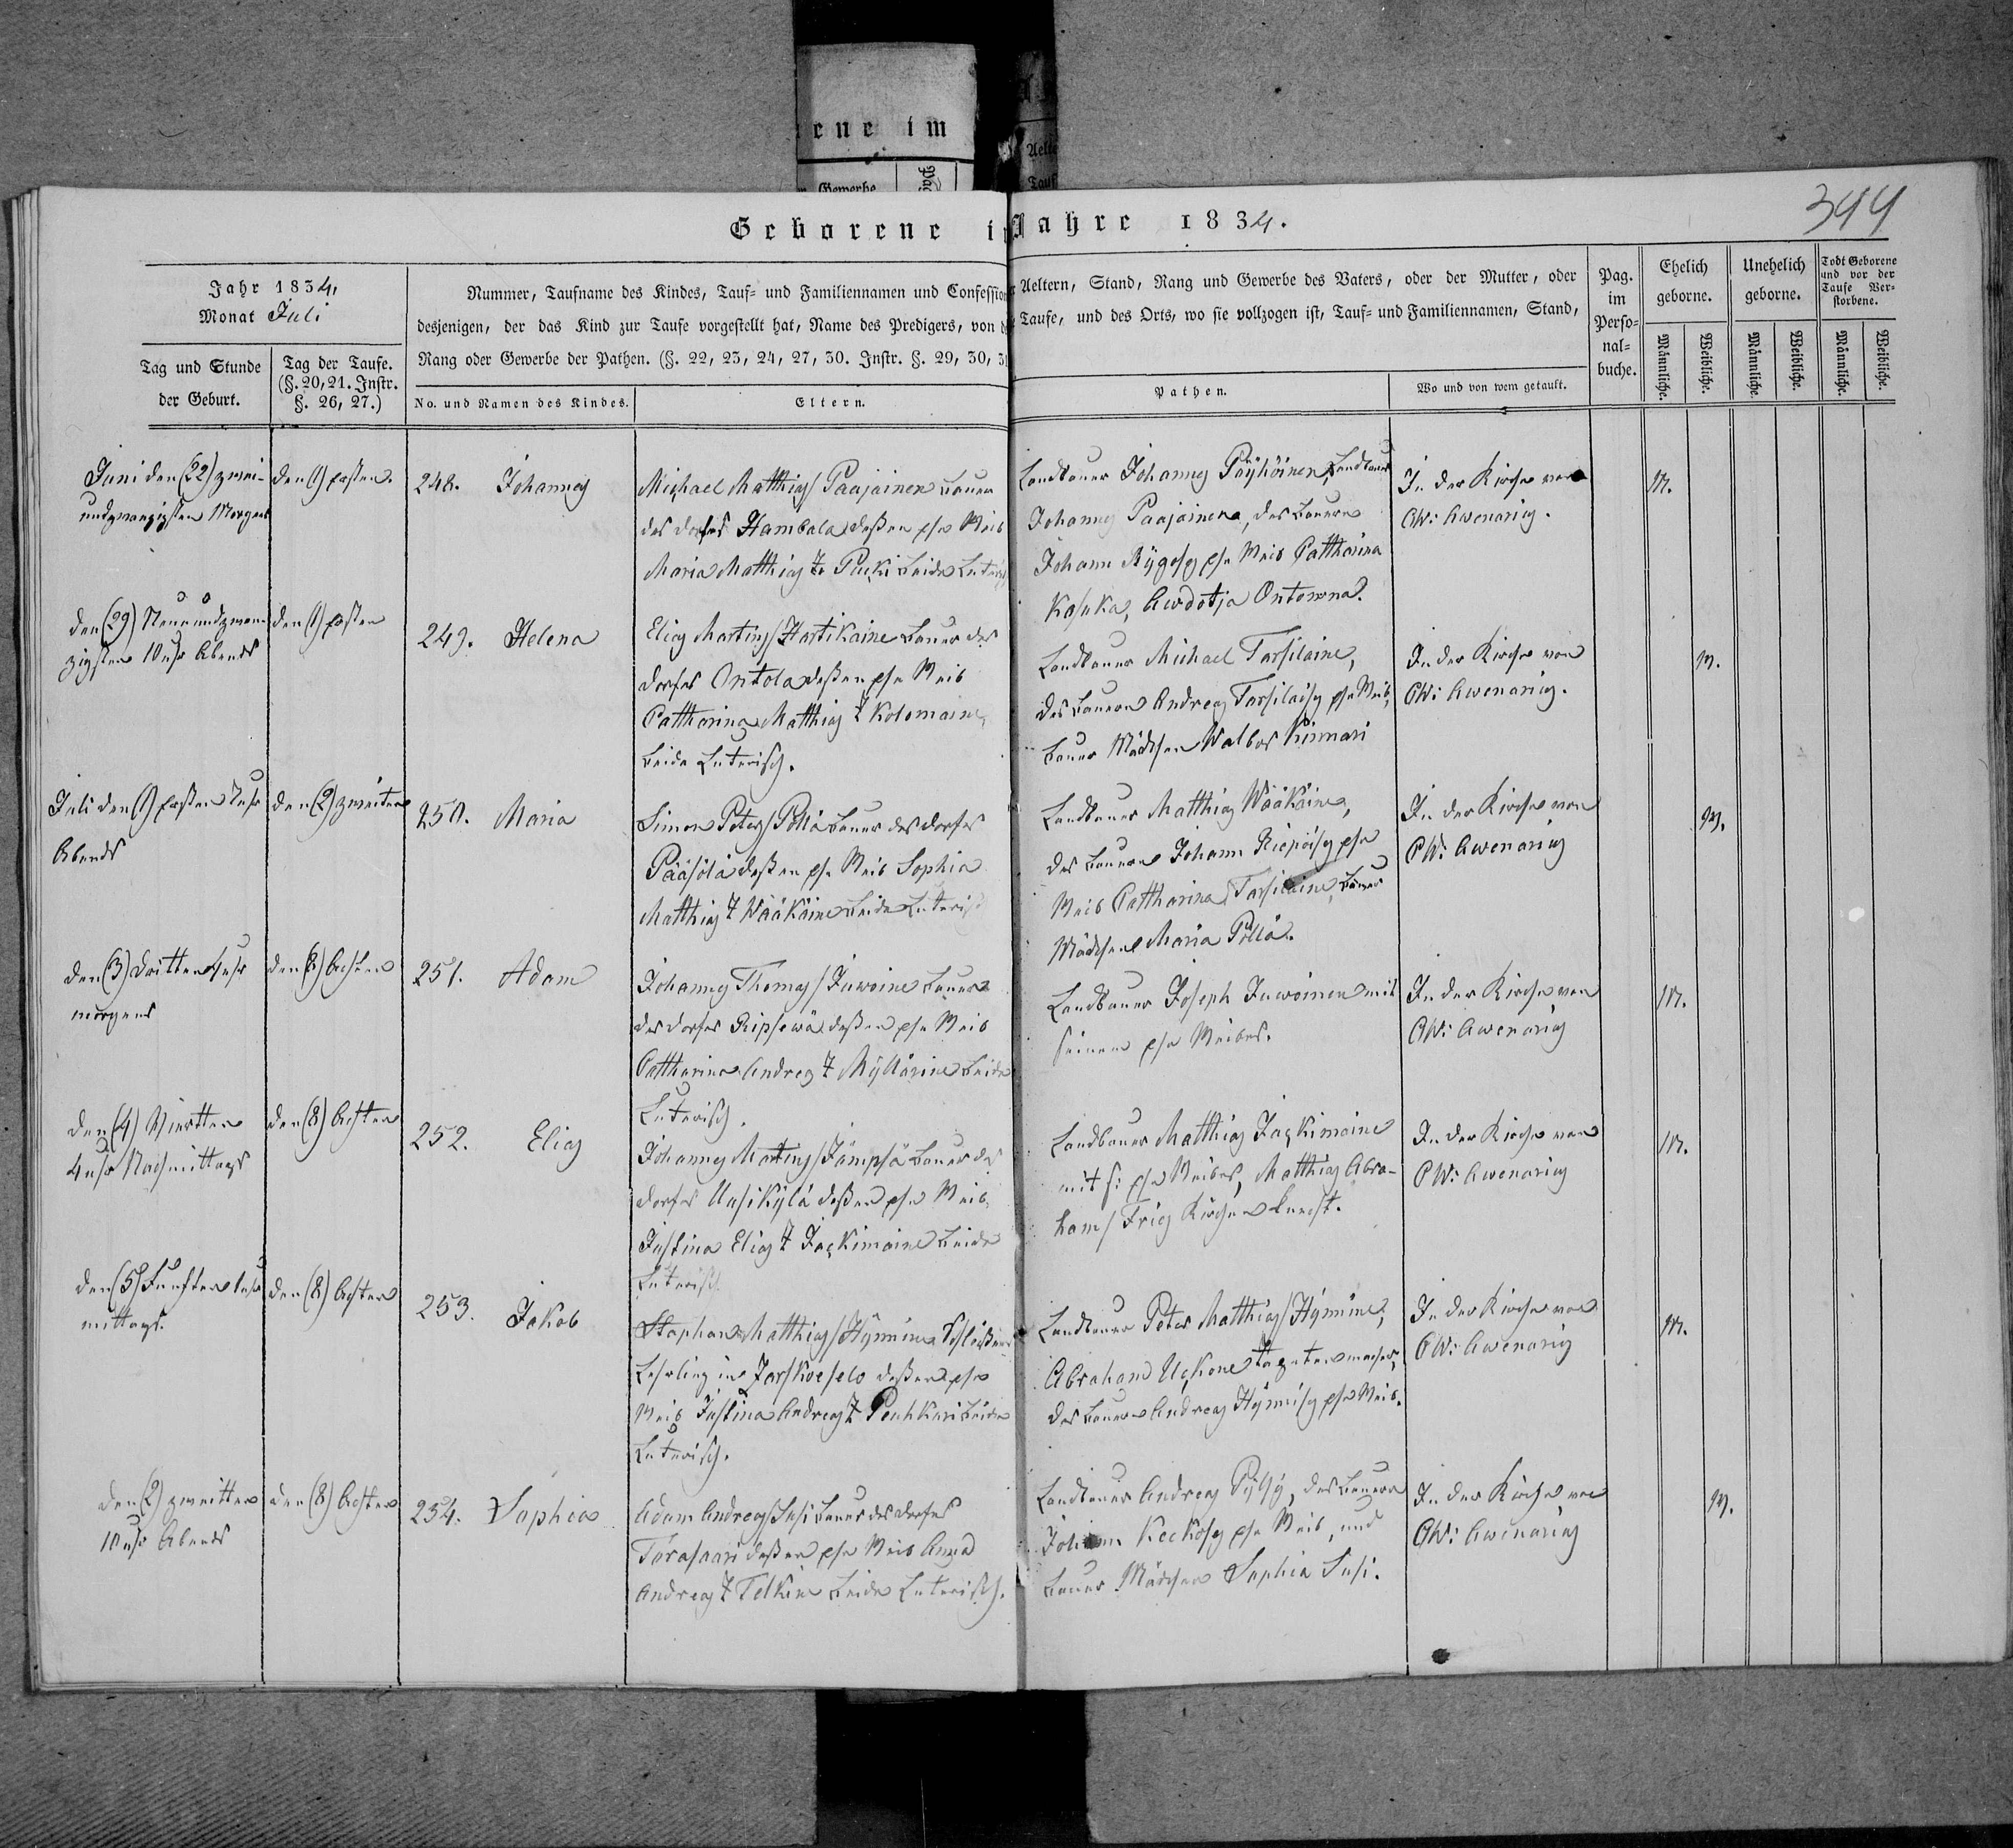 ene im
Gewerbe
Geborene im Jahre 1834.
344
Jahr 1834,
Monat Juli
Nummer, Taufname des Kindes, Tauf- und Familiennamen und Confession
desjenigen, der das Kind zur Taufe vorgestellt hat, Name des Predigers, von
Rang oder Gewerbe der Pathen. (§. 22, 23, 24, 27, 30. Instr. §. 29, 30, 31
Aeltern, Stand, Rang und Gewerbe des Vaters, oder der Mutter, oder
Taufe, und des Orts, wo sie vollzogen ist, Tauf- und Familiennamen, Stand,
Pag.
im
Perso-
nal-
buche.
Ehelich
geborne.
Unehelich
geborne.
Todt Geborene
und vor der
Taufe Ver-
storbene.
Tag und Stunde
der Geburt.
Tag der Taufe.
(§. 20, 21. Instr.
§. 26, 27.)
No. und Namen des Kindes.
Eltern.
Pathen.
Wo und von wem getauft.
Männliche.
Weibliche.
Männliche.
Weibliche.
Männliche.
Weibliche.
Juni den (22) zwei-
undzwanzigsten Morgens
den (1) ersten
248. Johannes
Michael Matthias Paajainen Bauer
des Dorfes Hambala deßen ehe Weib
Maria Matthias Beide
Landbauer Johannes Pöyhöinen, Landbauer
Johannes Paajainen, des Bauern
Johann ehe Weib Catharina
Kosuka, Awdotja Ontowna.
In der Kirche von
CW: Awenarius.
M.
den (29) Neunundzwan-
zigsten 10 uhr Abends
den (1) ersten
249. Helena
Elias Martins Hartikaine Bauer des
Dorfes Ontola deßen ehe Weib
Catharina Matthias Kolomaine
Beide Luterisch.
Landbauer Michael Tarsilaine,
des Bauern Andreas ehe Weib,
Bauer Mädchen Walbor Kinnari
In der Kirche von
CW: Awenarius.
W.
Juli den (1) ersten uhr
Abends
den (2) zweiten
250. Maria
Simon Peters Pöllä Bauer des Dorfes
Pääsölä deßen ehe Weib Sophia
Matthias Wääkäine Beide Luterisch
Landbauer Matthias Wääkäine,
des Bauern Johann ehe
Weib Catharina Tarsilaine, Bauer
Mädchen Maria Pöllä.
In der Kirche von
CW: Awenarius
W.
den (3) dritten uhr
morgens
den (8) Achten
251. Adam
Johannes Thomas Juwoine Bauer
des Dorfes Ripsewä deßen ehe Weib
Catharina Andreas Myllärine Beide
Luterisch.
Landbauer Joseph Juwoinen mit
seinem ehe Weibe.
In der Kirche von
CW: Awenarius
M.
den (4) Vierten
4 uhr Nachmittags
den (8) Achten
252. Elias
Johannes Martins Jämpsä Bauer des
Dorfes Uusikylä deßen ehe Weib
Justina Elias Jackimaine Beide
Luterisch
Landbauer Matthias Jackimaine
mit s: ehe Weibe, Matthias Abra-
ham Kirchen Knecht.
In der Kirche von
CW: Awenarius
M.
den (5) Fünften uhr
mittags.
den (8) Achten
253. Jakob
Stephan Matthias Hynnine
Lehrling in Zarskoeselo deßen ehe
Weib Justina Andreas Penkkuri Beide
Luterisch.
Landbauer Peter Matthias Hynnine,
Abraham Uckone
des Bauern Andreas ehe Weib.
In der Kirche von
CW: Awenarius
M.
den (2) zweiten
10 uhr Abends
den (8) Achten
254. Sophia
Adam Andreas Susi Bauer des Dorfes
Torasaari deßen ehe Weib Anna
Andreas Telkine Beide Luterisch.
Landbauer Andreas Pylsy, des Bauern
Johann ehe Weib, und
Bauer Mädchen Sophia Susi.
In der Kirche von
CW: Awenarius
W.